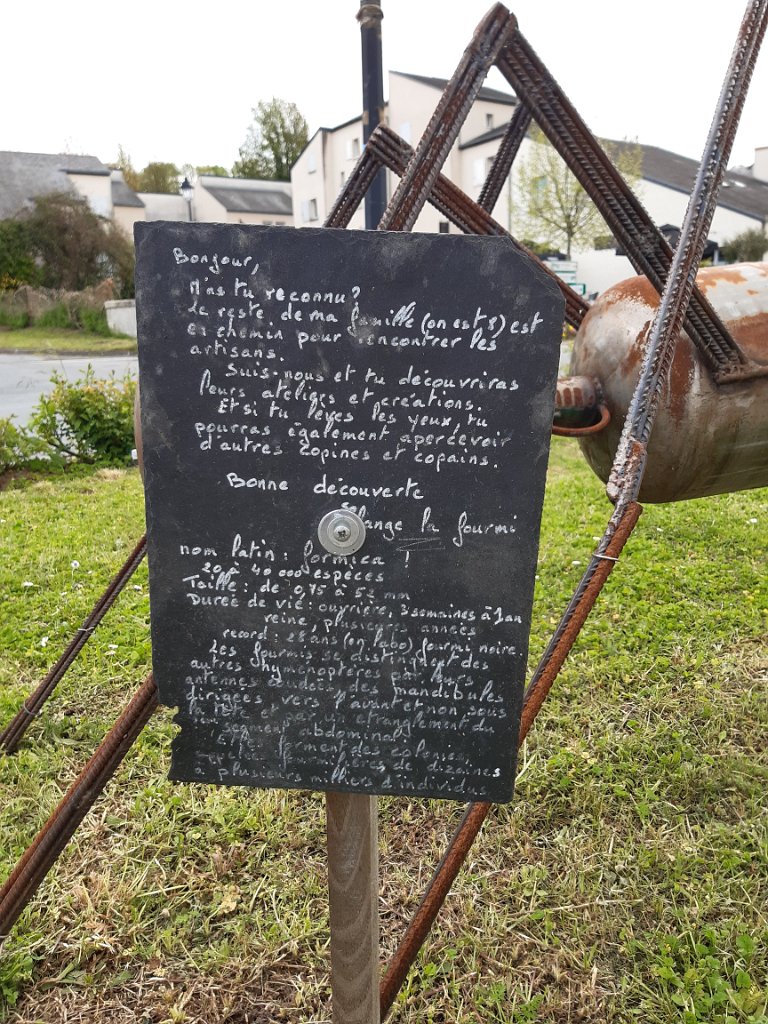 Bonjour,
M'as tu reconnu?
Le reste de ma famille (on est 8) est
en chemin pour rencontrer les
artisans.
Suis-nous et tu découvriras
leurs ateliers et créations.
Et si tu lèves les yeux, tu
pourras également apercevoir
d'autres copines et copains.
Bonne découverte
Solange la fourmi
nom latin : formica !
20 à 40 000 espèces
Taille : de 0,75 à 52 mm
Durée de vie : ouvrière, 3 semaines à 1 an
reine, plusieurs années
record : 28 ans (en labo) fourmi noire
Les fourmis se distinguent des
autres hyménoptères par leurs
antennes coudées, des mandibules
dirigées vers l'avant et non sous
la tête et par un étranglement du
1er segment abdominal
Elles forment des colonies,
fourmilières de dizaines
à plusieurs millier d'individus